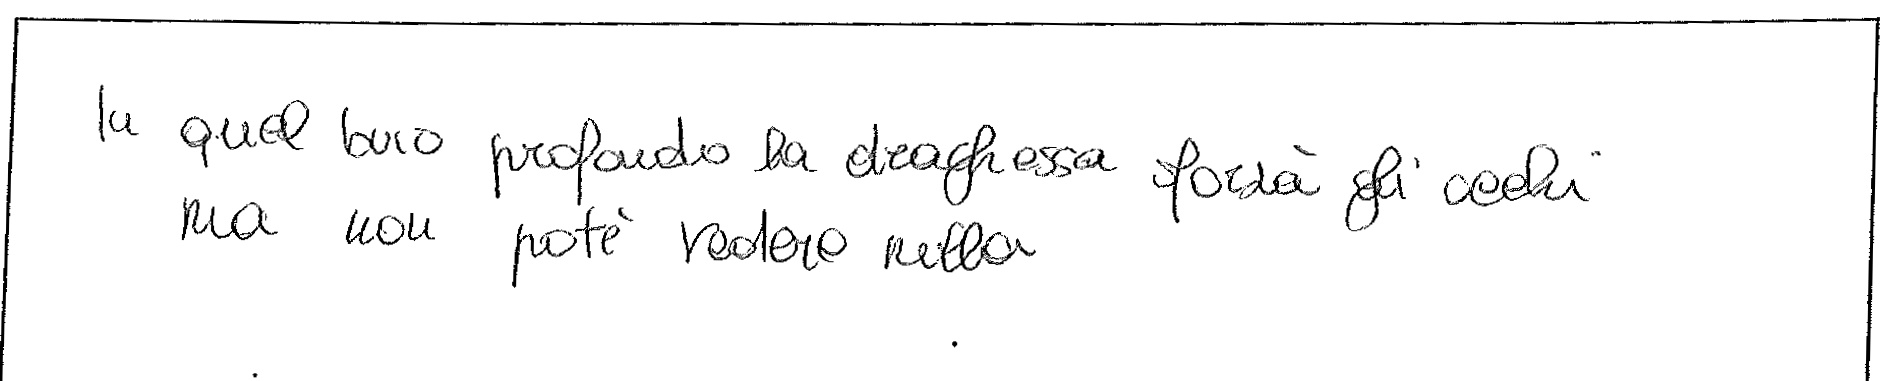 In quel buio profondo la draghessa sforzà gli occhi
ma non potè vedere nulla